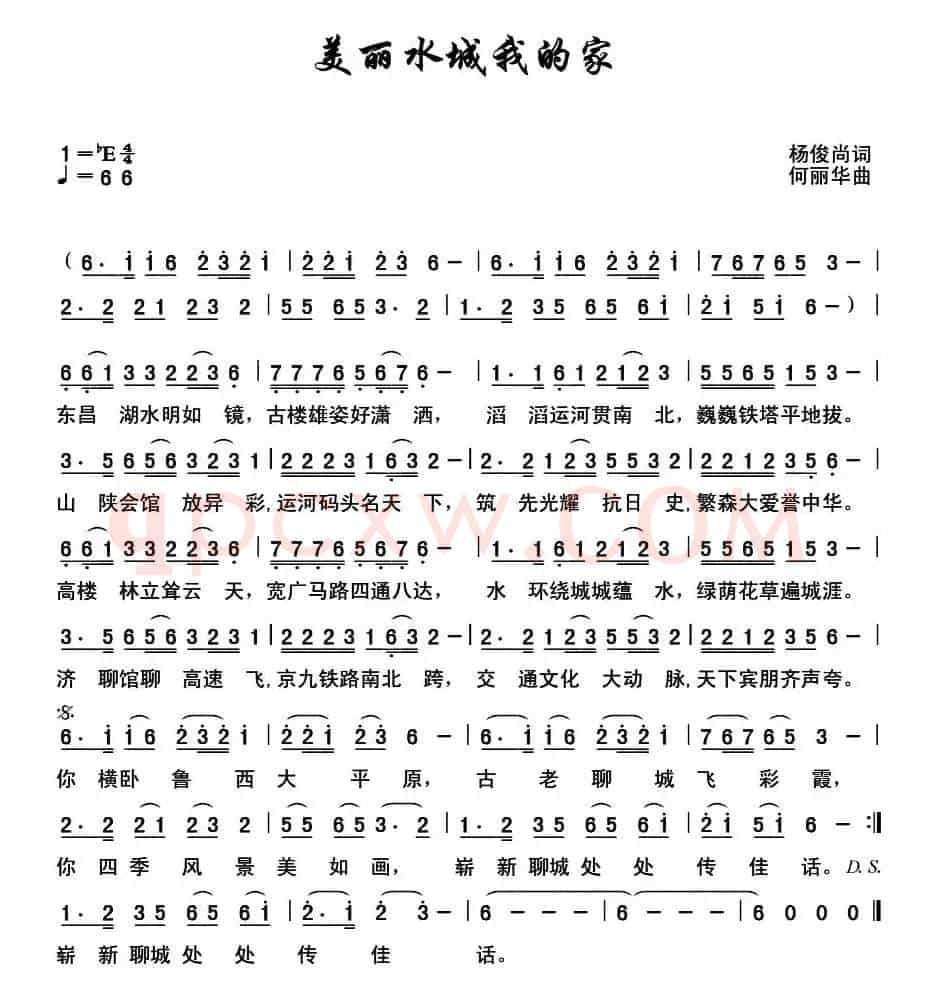 美丽水城我的家
1=♭E 4/4
杨俊尚词
♩=66
何丽华曲
(6· i i6 2321 | 221 23 6- | 6· i i6 2321 | 76765 3- |
2·2 21 23 2 | 55 653·2 | 1·2 35 65 6i | 2i 5i 6-) |
661332236 | 77765676- | 1·161212 3 | 55565153 |
东昌 湖水明如 镜,古楼雄姿好潇 洒, 滔 滔运河贯南 北,巍巍铁塔平地拔。
3·5656323 1 | 2223163 2- | 2·21235532 | 22123 56- |
山 陕会馆 放异 彩,运河码头名天 下, 筑 先光耀 抗日 史,繁森大爱誉中华。
661332236 | 77765676- | 1·161212 3 | 55565153 |
高楼 林立耸云 天,宽广马路四通八达, 水 环绕城城蕴 水,绿荫花草遍城涯。
3·5656323 1 | 2223163 2- | 2·21235532 | 22123 56- |
济 聊馆聊 高速 飞,京九铁路南北 跨, 交 通文化 大动 脉,天下宾朋齐声夸。
6· i i6 232 i | 22i 23 6- | 6· i i6 232i | 76765 3- |
你 横卧 鲁 西大 平 原, 古 老 聊 城 飞 彩 霞,
2·2 21 23 2 | 55 653·2 | 1·2 35 65 6i | 2i 5i 6- :||
你 四 季 风 景 美 如 画, 崭 新 聊城 处 处 传 佳 话。D.S.
1·2 35 65 6i | 2·i 2 3- | 6--- | 6--- | 6 0 0 0 ||
崭 新 聊城 处 处 传 佳 话。
qpcxw.com